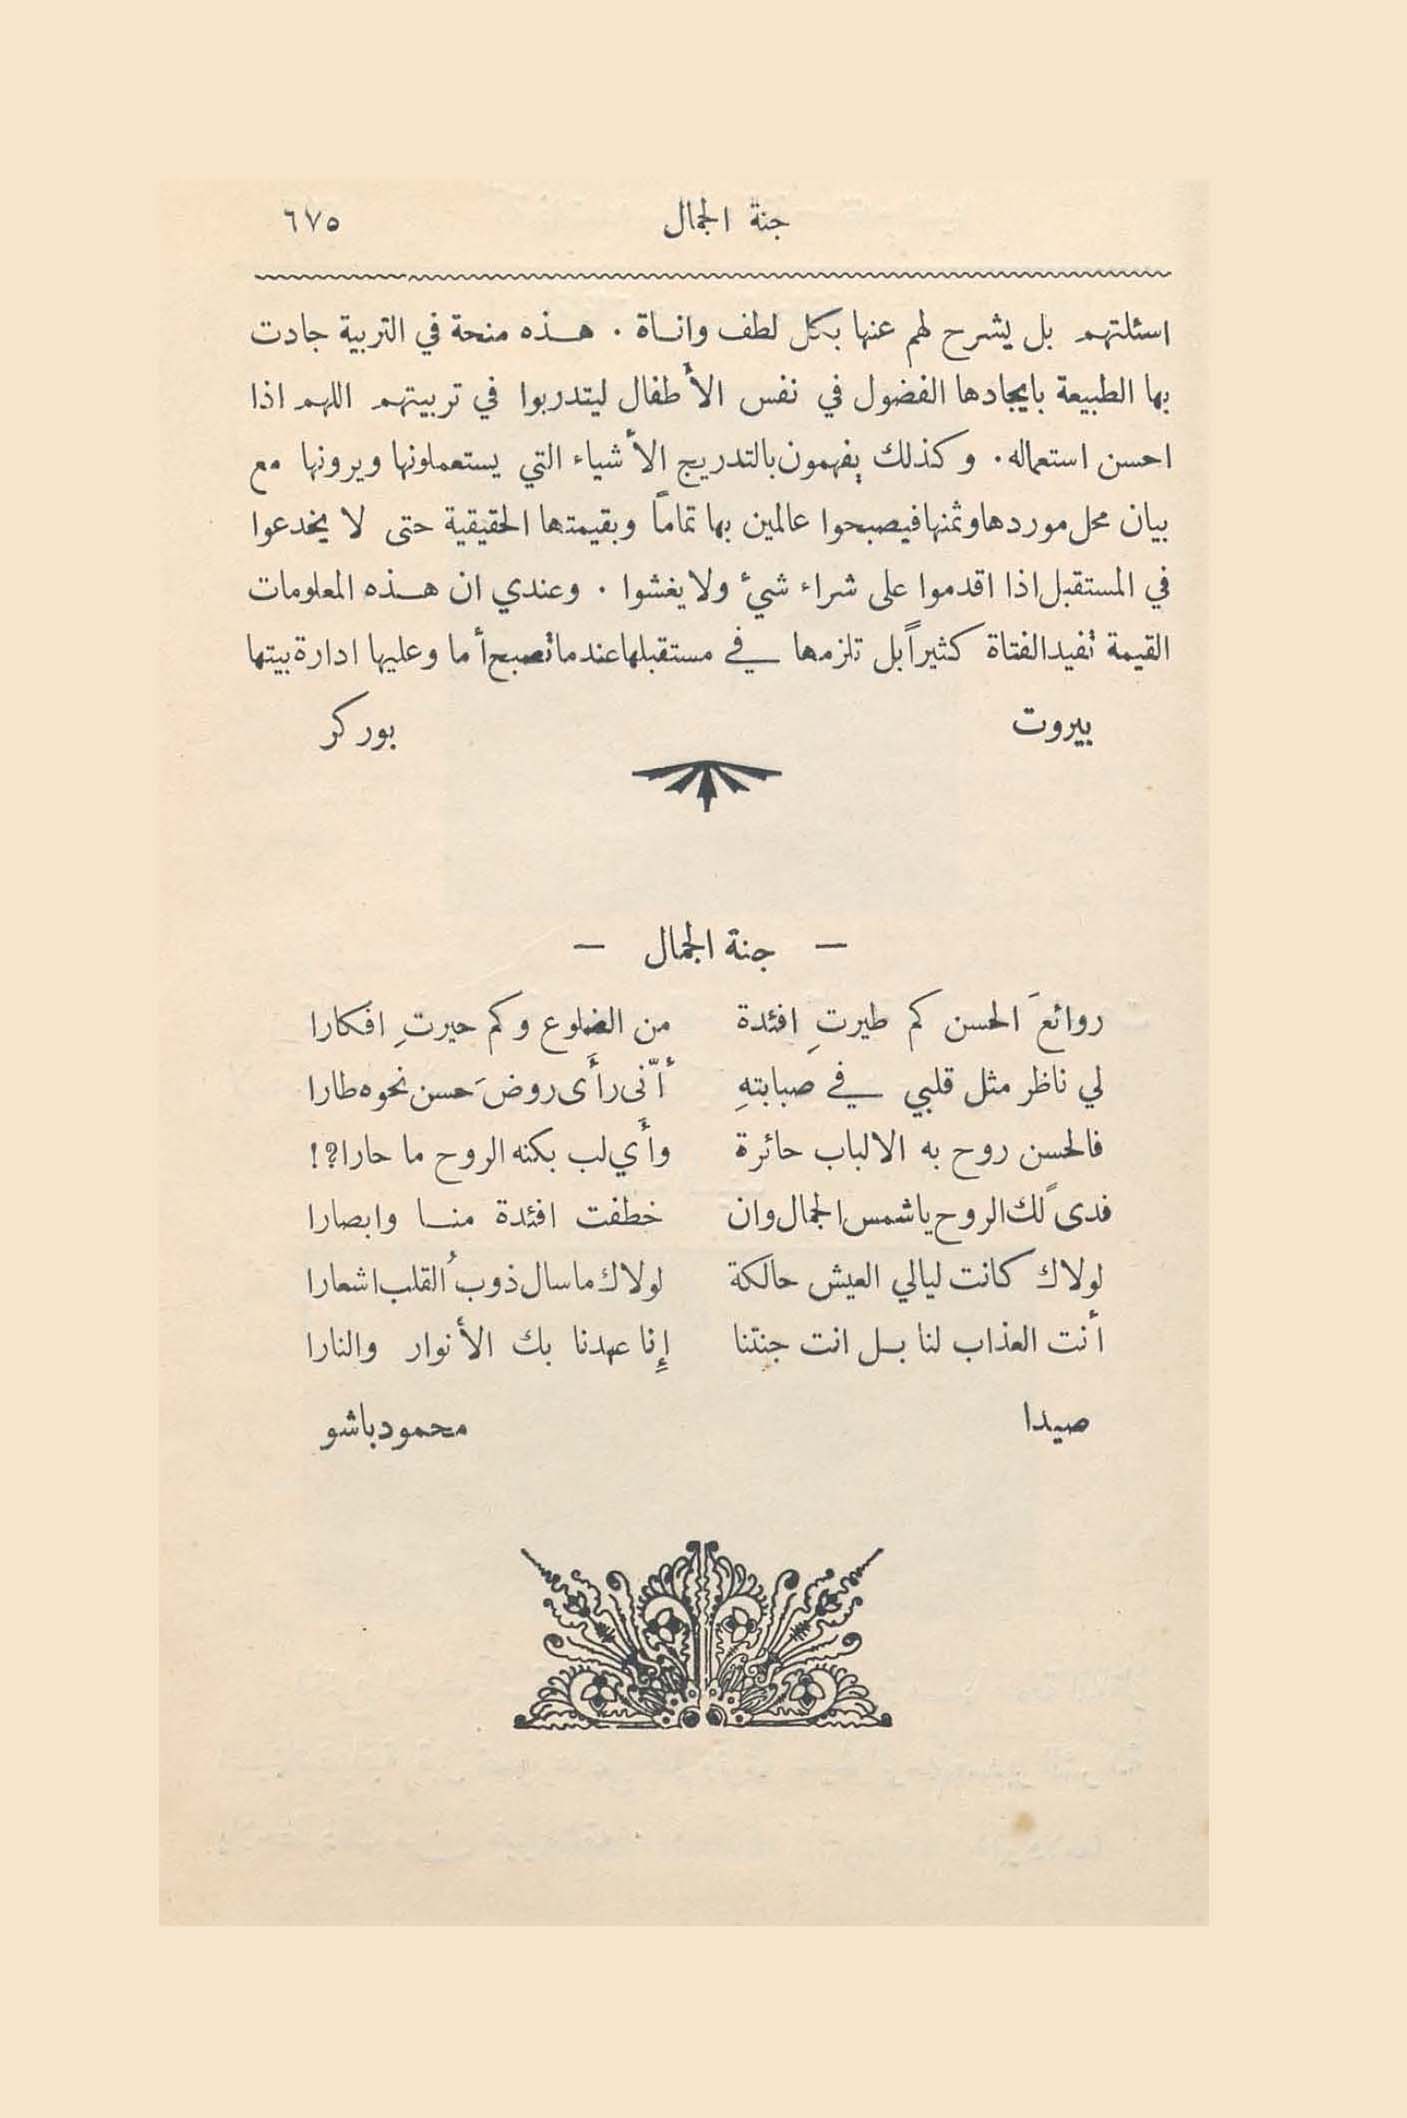 جنة الجمال ٦٧٥
اسئلتهم بل يشرح لهم عنها بكل لطف واناة . هذه منحة في التربية جادت
بها الطبيعة بايجادها الفضول في نفس الأطفال ليتدربوا في تربيتهم اللهم اذا
احسن استعماله . وكذلك يفهمون بالتدريج الأشياء التي يستعملونها ويرونها مع
بيان محل موردها وثمنها فيصبحوا عالمين بها تماماً وبقيمتها الحقيقية حتى لا يخدعوا
في المستقبل اذا اقدموا على شراء شيء ولا يغشوا . وعندي ان هذه المعلومات
القيمة تفيد الفتاة كثيراً بل تلزمها في مستقبلها عندما تصبح أما وعليها ادارة بيتها
بيروت بوركر
— جنة الجمال —
روائعَ الحسن كم طيرتِ افئدة من الضلوع وكم حيرتِ افكارا
لي ناظر مثل قلبي في صبابتهِ أنّى رأَى روضَ حسن نحوه طارا
فالحسن روح به الالباب حائرة وأَي لب بكنه الروح ما حارا؟!
فدىً لك الروح يا شمس الجمال وان خطفت افئدة منا وابصارا
لولاك كانت ليالي العيش حالكة لولاك ما سال ذوبُ القلب اشعارا
أنت العذاب لنا بل انت جنتنا إنا عهدنا بك الأنوار والنارا
صيدا محمود باشو